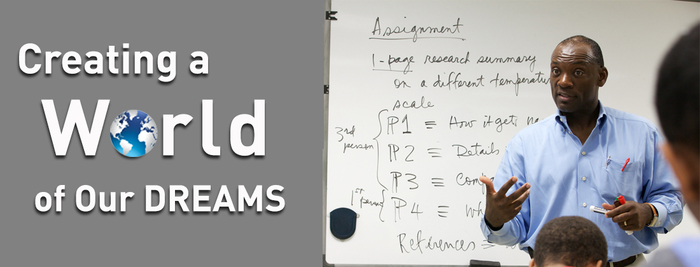 Creating a
World
of Our DREAMS
Assignment
1-page research summary
on a different temperature
scale
3rd person
P1 ≡ How it gets
P2 ≡ Details
P3 ≡
1st person
P4 ≡
References ≡